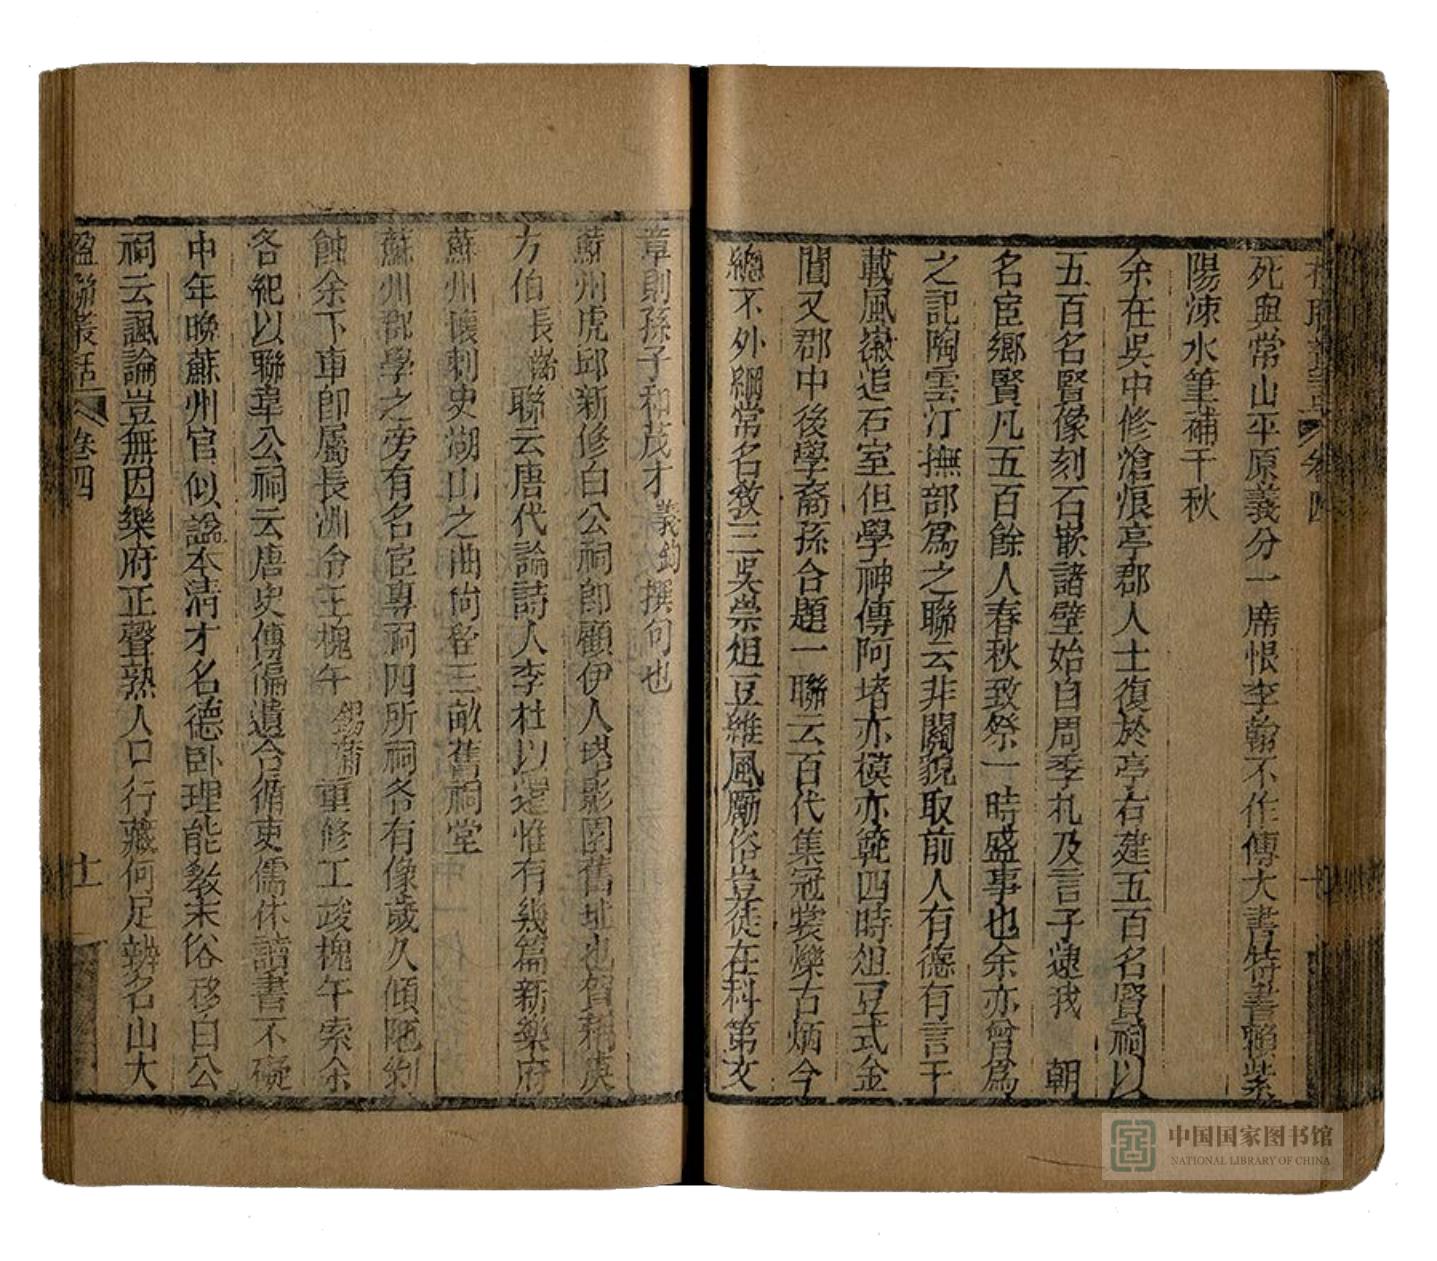 楹聯叢話 卷四 十
死與常山平原義分一席恨李翰不作傳大書特書賴紫
陽涑水筆補千秋
余在吳中修滄浪亭郡人士復於亭右建五百名賢祠以
五百名賢像刻石嵌諸壁始自周季札及言子逮我 朝
名宦鄉賢凡五百餘人春秋致祭一時盛事也余亦曾爲
之記陶雲汀撫部爲之聯云非關貌取前人有德有言千
載風徽追石室但學神傳阿堵亦模亦範四時俎豆式金
閶又郡中後學裔孫合題一聯云百代集冠裳爍古炳今
總不外綱常名教三吳崇俎豆維風勵俗豈徒在科第文
章則孫子和茂才義鈞撰句也
蘇州虎邱新修白公祠即顧伊人塔影園舊址也賀耦庚
方伯長齡聯云唐代論詩人李杜以還惟有幾篇新樂府
蘇州懷刺史湖山之曲尙留三畝舊祠堂
蘇州郡學之旁有名宦專祠四所祠各有像歲久傾陁約
餘余下車卽屬長洲令王槐午錫蒲重修工竣槐午索余
各紀以聯韋公祠云唐史傳偏遺合循吏儒休讀書不礙
中年晚蘇州官似諡本清才名德臥理能敎末俗移白公
祠云諷諭豈無因樂府正聲熟人口行藏何足辨名山大
楹聯叢話 卷四 十一
中国国家图书馆
NATIONAL LIBRARY OF CHINA